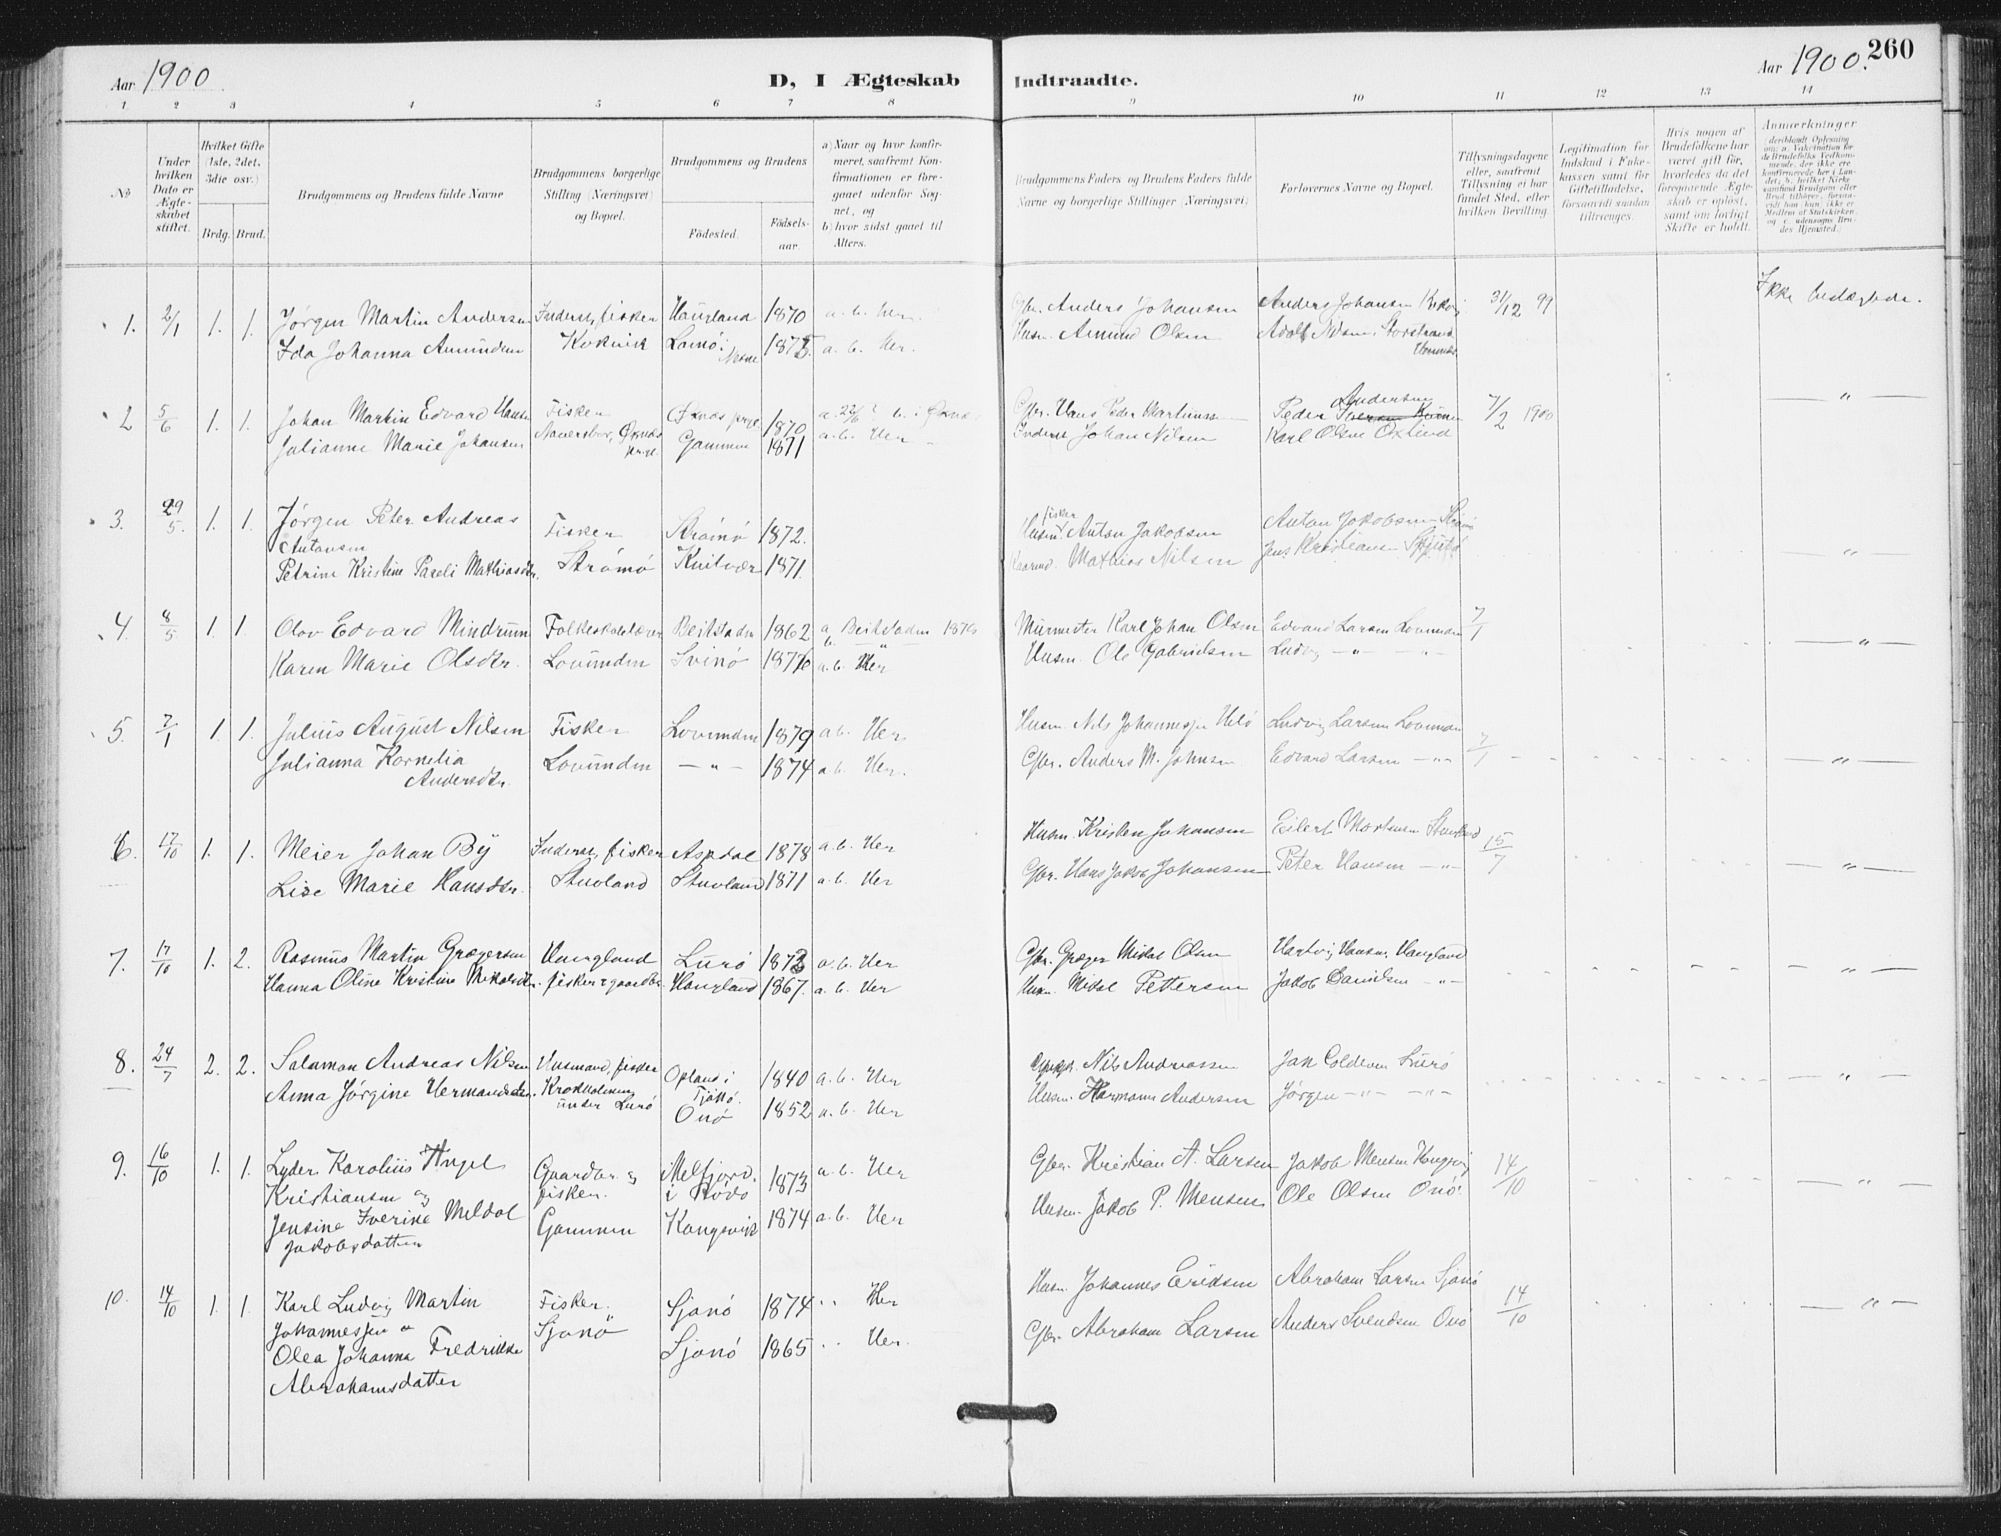 Aar 1900
D, I Ægteskab Indtraadte.
Aar 1900. 260
1 2 3 4 5 6 7 8 9 10 11 12 13 14
No
Under hvilken Dato er Ægteskabet stiftet.
Hvilket Gifte (1ste, 2det, 3die osv.)
Brdg. Brud.
Brudgommens og Brudens fulde Navne
Brudgommens borgerlige Stilling (Næringsvei) og Bopæl.
Brudgommens og Brudens
Födested. Födsels-aar.
a) Naar og hvor konfirmeret, saafremt Konfirmationen er foregaaet udenfor Sognet, og
b) hvor sidst gaaet til Alters.
Brudgommens Faders og Brudens Faders fulde Navne og borgerlige Stillinger (Næringsvei)
Forlovernes Navne og Bopæl.
Tillysningsdagene eller, saafremt Tillysning ei har fundet Sted, efter hvilken Bevilling.
Legitimation for Indskud i Enkekassen samt for Giftetilladelse, forsaavidt saadan tiltrænges.
Hvis nogen af Brudefolkene har været gift før, hvorledes da det foregaaende Ægteskab er opløst, samt om lovligt Skifte er holdt.
Anmærkninger
(deriblandt Oplysning om: a. Vakcination for de Brudefolks Vedkommende, der ikke ere konfirmerede her i Landet; b. hvilket Kirkesamfund Brudgom eller Brud tilhører, forsaavidt han (hun) ikke er Medlem af Statskirken, og c. udensogns Brudes Hjemsted.)
1. 2/1 1. 1. Jörgen Martin Andersen Inderst, fisker Haugland 1870 a. b. her. Gbr. Anders Johansen Anders Johansen Kvkvig 31/12 99 Ikke beslægtede.
Ida Johanna Amundsen Kvkvik Lamö i Nesne a. b. her. Husm. Amund Olsen Adolf Nilsen Storstrand
2 5/6 1. 1. Johan Martin Edvard Hansen Fisker Öxnæs prgj. 1870 Gbr. Hans Peder Martinussen Peder Andersen 7/2 1900 — " —
Julianne Marie Johansen Öxnæs prgj. Gammen 1871 a. b. Her — Inderst Johan Nilsen Karl Olsen
3. 29/5. 1. 1. Jörgen Peter Andreas Antonsen Fisker Strömö 1872. Husm. fisker Anton Jakobsen Anton Jakobsen Strömö
Petrine Kristine Pareli Mathiasdtr. Strömö Kvitvær 1871. Mathias Nilsen Jens Kristiansen — " —
4. 8/5 1. 1. Olav Edvard Mindrum Folkeskolelærer Beitstaden 1862 a Beitstaden Murmester Karl Johan Olsen Edvard Larsen Lovunden 7/1
Karen Marie Olsdtr. Lovunden Svinö a. b. Her Husm. Ole Gabrielsen Ludvig — " — — " — — " —
5. 7/1 1. 1. Julius August Nilsen Fisker Lovunden 1879 a b. Her Husm. Nils Johannessen Ludvig Larsen Lovunden 7/1
Julianna Kornelia Andersdtr. Lovunden — " — 1874 a b. Her. Gbr. Anders M. Johnsen Edvard Larsen — " — — " —
6. 17/10 1. 1. Meier Johan By Inderst, fisker Aspdal 1878 a b. Her Husm. Kristen Johansen Eilert Mortensen Stuvland 15/7
Lise Marie Hansdtr. Stuvland Stuvland 1871 a. b. Her Gbr. Hans Jakob Johansen Peter Hansen — " — — " —
7. 17/10 1. 2. Rasmus Martin Grægersen Haugland Lurö 1873 a. b. Her Gbr. Græger Mikal Olsen Hartvig Hansen Haugland
Hanna Oline Kristine Mikalsdtr. fisker & gaardbr. Haugland 1867. a. b. Her Husm. Mikal Pettersen Jakob Danielsen — " — — " —
8. 24/7 2. 2. Salamon Andreas Nilsen Husmand, fisker Opland i Tjöttö. 1840 a. b. Her Nils Andreassen Jak Coldevin Lurö
Anna Jörgine Hermandsdtr. Krokholmen under Lurö Onö 1852 a. b. Her Husm. Hermann Andersen Jörgen — " — — " — — " —
9. 16/10 1. 1. Lyder Karolius Angel Kristiansen og Gaardbr. & fisker. Melfjord i Rödö 1873 a. b. Her Gbr. Kristian A. Larsen Jakob Mensen Kongsvig 14/10
Jensine Iverine Meldal Jakobsdatter Gammen Kongsvik 1874 a. b. Her Husm. Jakob P. Mensen Ole Olsen Onö. — " —
10. 14/10 1. 1. Karl Ludvig Martin Johannessen o Fisker. Sjonö Sjonö 1874 " Her Husm. Johannes Eridsen Abraham Larsen Sjonö 14/10
Olea Johanna Fredrikke Abrahamsdatter Sjonö 1865 " Her. Gbr. Abraham Larsen Anders Svendsen Onö — " —